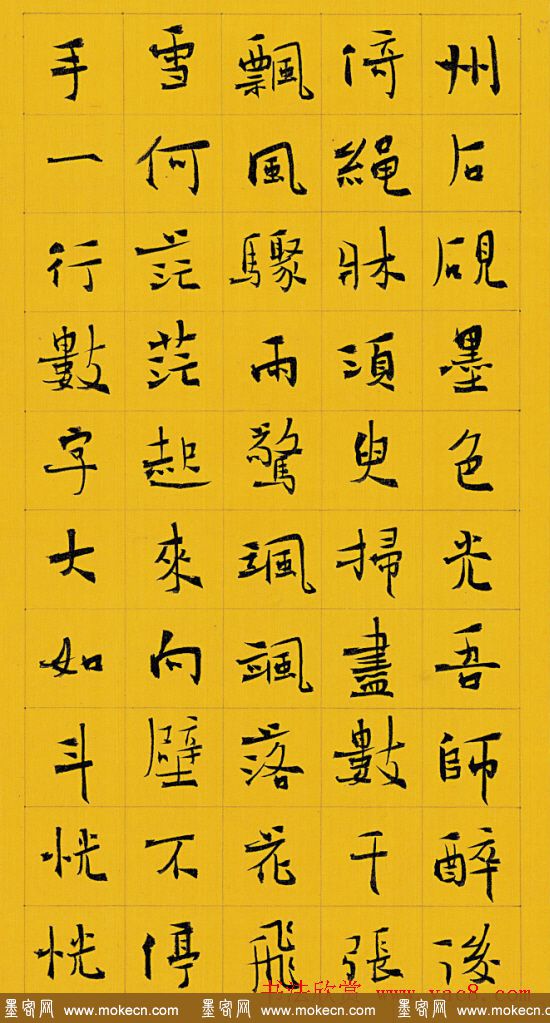 州石硯墨色光吾師醉後
倚繩牀須臾掃盡數千張
飄風驟雨驚颯颯落花飛
雪何茫茫起來向壁不停
手一行數字大如斗恍恍
书法欣赏 www.yac8.com
墨客网 www.mokecn.com 墨客网 www.mokecn.com 墨客网 www.mokecn.com